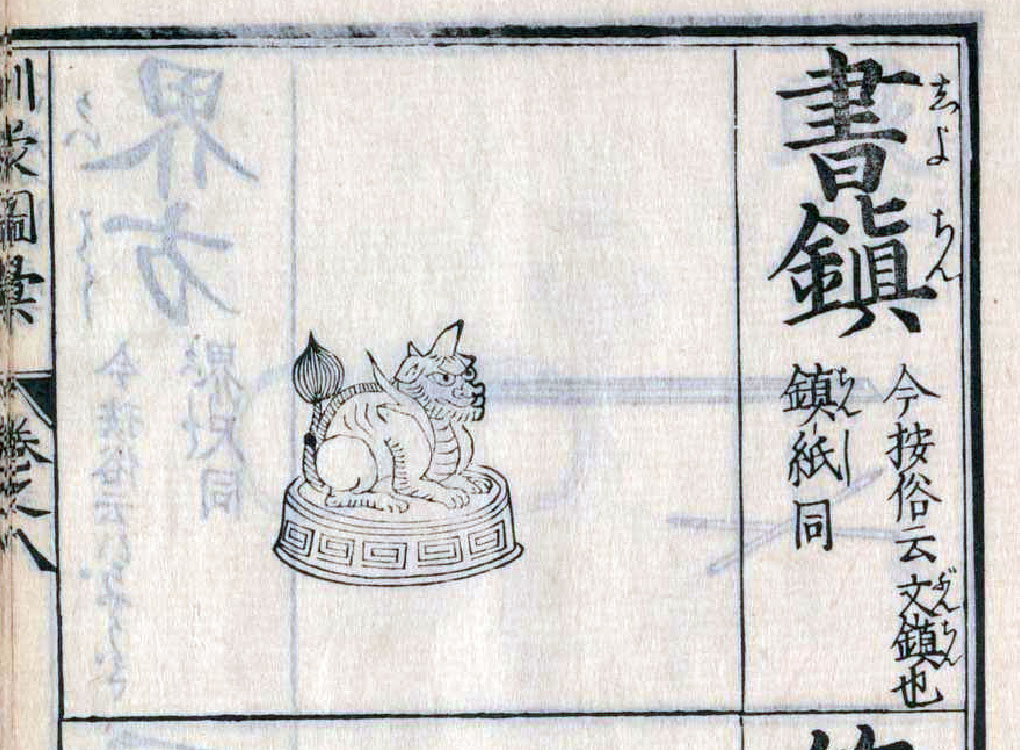 書鎮
しよちん
今按俗云文鎮也
ぶんちん
鎮紙同
ちん
訓蒙圖彙
巻之八